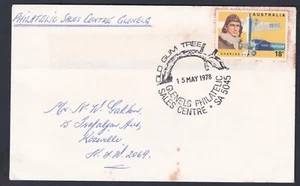 PHILATELIC SALES CENTRE GLENELG
AUSTRALIA
CHARLES
18c
OLD GUM TREE
15 MAY 1978
GLENELG PHILATELIC
SALES CENTRE • SA 5045
Mr. N. W.
15 Trafalgar Ave,
Roseville
N.S.W. 2069.